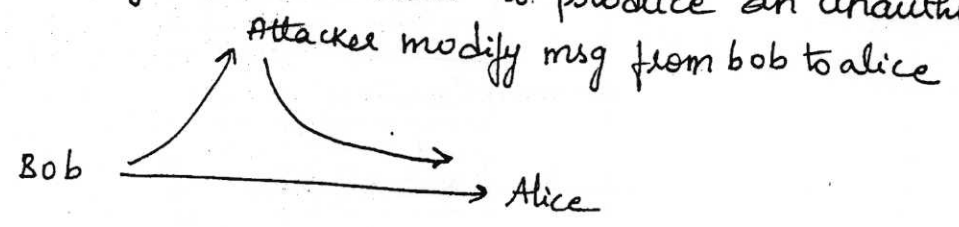 produce an
Attacker modify msg from bob to alice
Bob
Alice